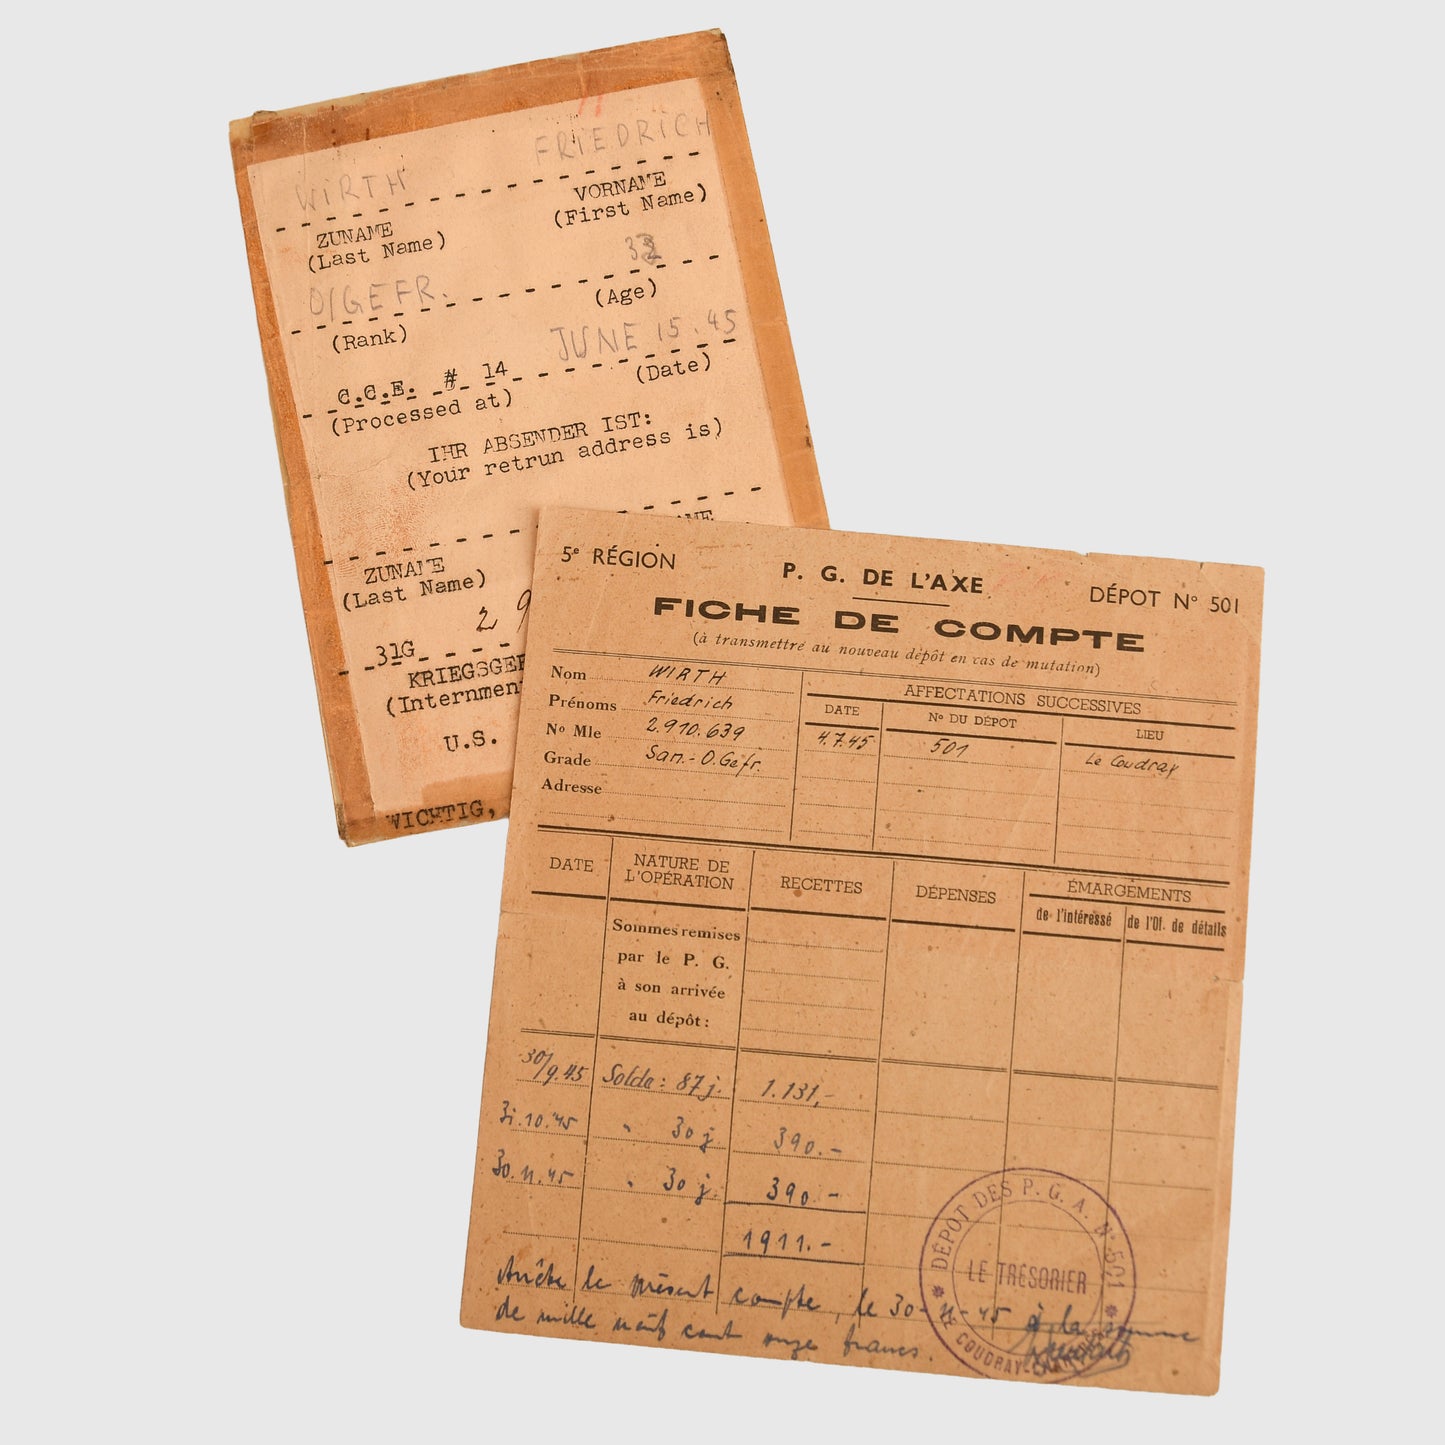 WIRTH FRIEDRICH
ZUNAME VORNAME
(Last Name) (First Name)
O/GEFR. 32
(Rank) (Age)
C.C.E. # 14 JUNE 15.45
(Processed at) (Date)
IHR ABSENDER IST:
(Your retrun address is)
ZUNAME
(Last Name)
31G 29
KRIEGSGEF
(Internmen
U.S.
WICHTIG,
5e RÉGION P. G. DE L'AXE DÉPOT No 501
FICHE DE COMPTE
(à transmettre au nouveau dépôt en cas de mutation)
Nom WIRTH
Prénoms Friedrich
No Mle 2.910.639
Grade San.-O.Gefr.
Adresse
AFFECTATIONS SUCCESSIVES
DATE No DU DÉPOT LIEU
4.7.45 501 Le Coudray
DATE NATURE DE L'OPÉRATION RECETTES DÉPENSES ÉMARGEMENTS
de l'intéressé de l'Of. de détails
Sommes remises
par le P. G.
à son arrivée
au dépôt :
30/9.45 Solde : 87 j. 1.131,-
31.10.45 " 30 j. 390.-
30.11.45 " 30 j. 390.-
1911.-
Arrête le présent compte, le 30-11-45 à la somme
de mille neuf cent onze francs.
DÉPOT DES P. G. A. No 501
LE TRÉSORIER
COUDRAY